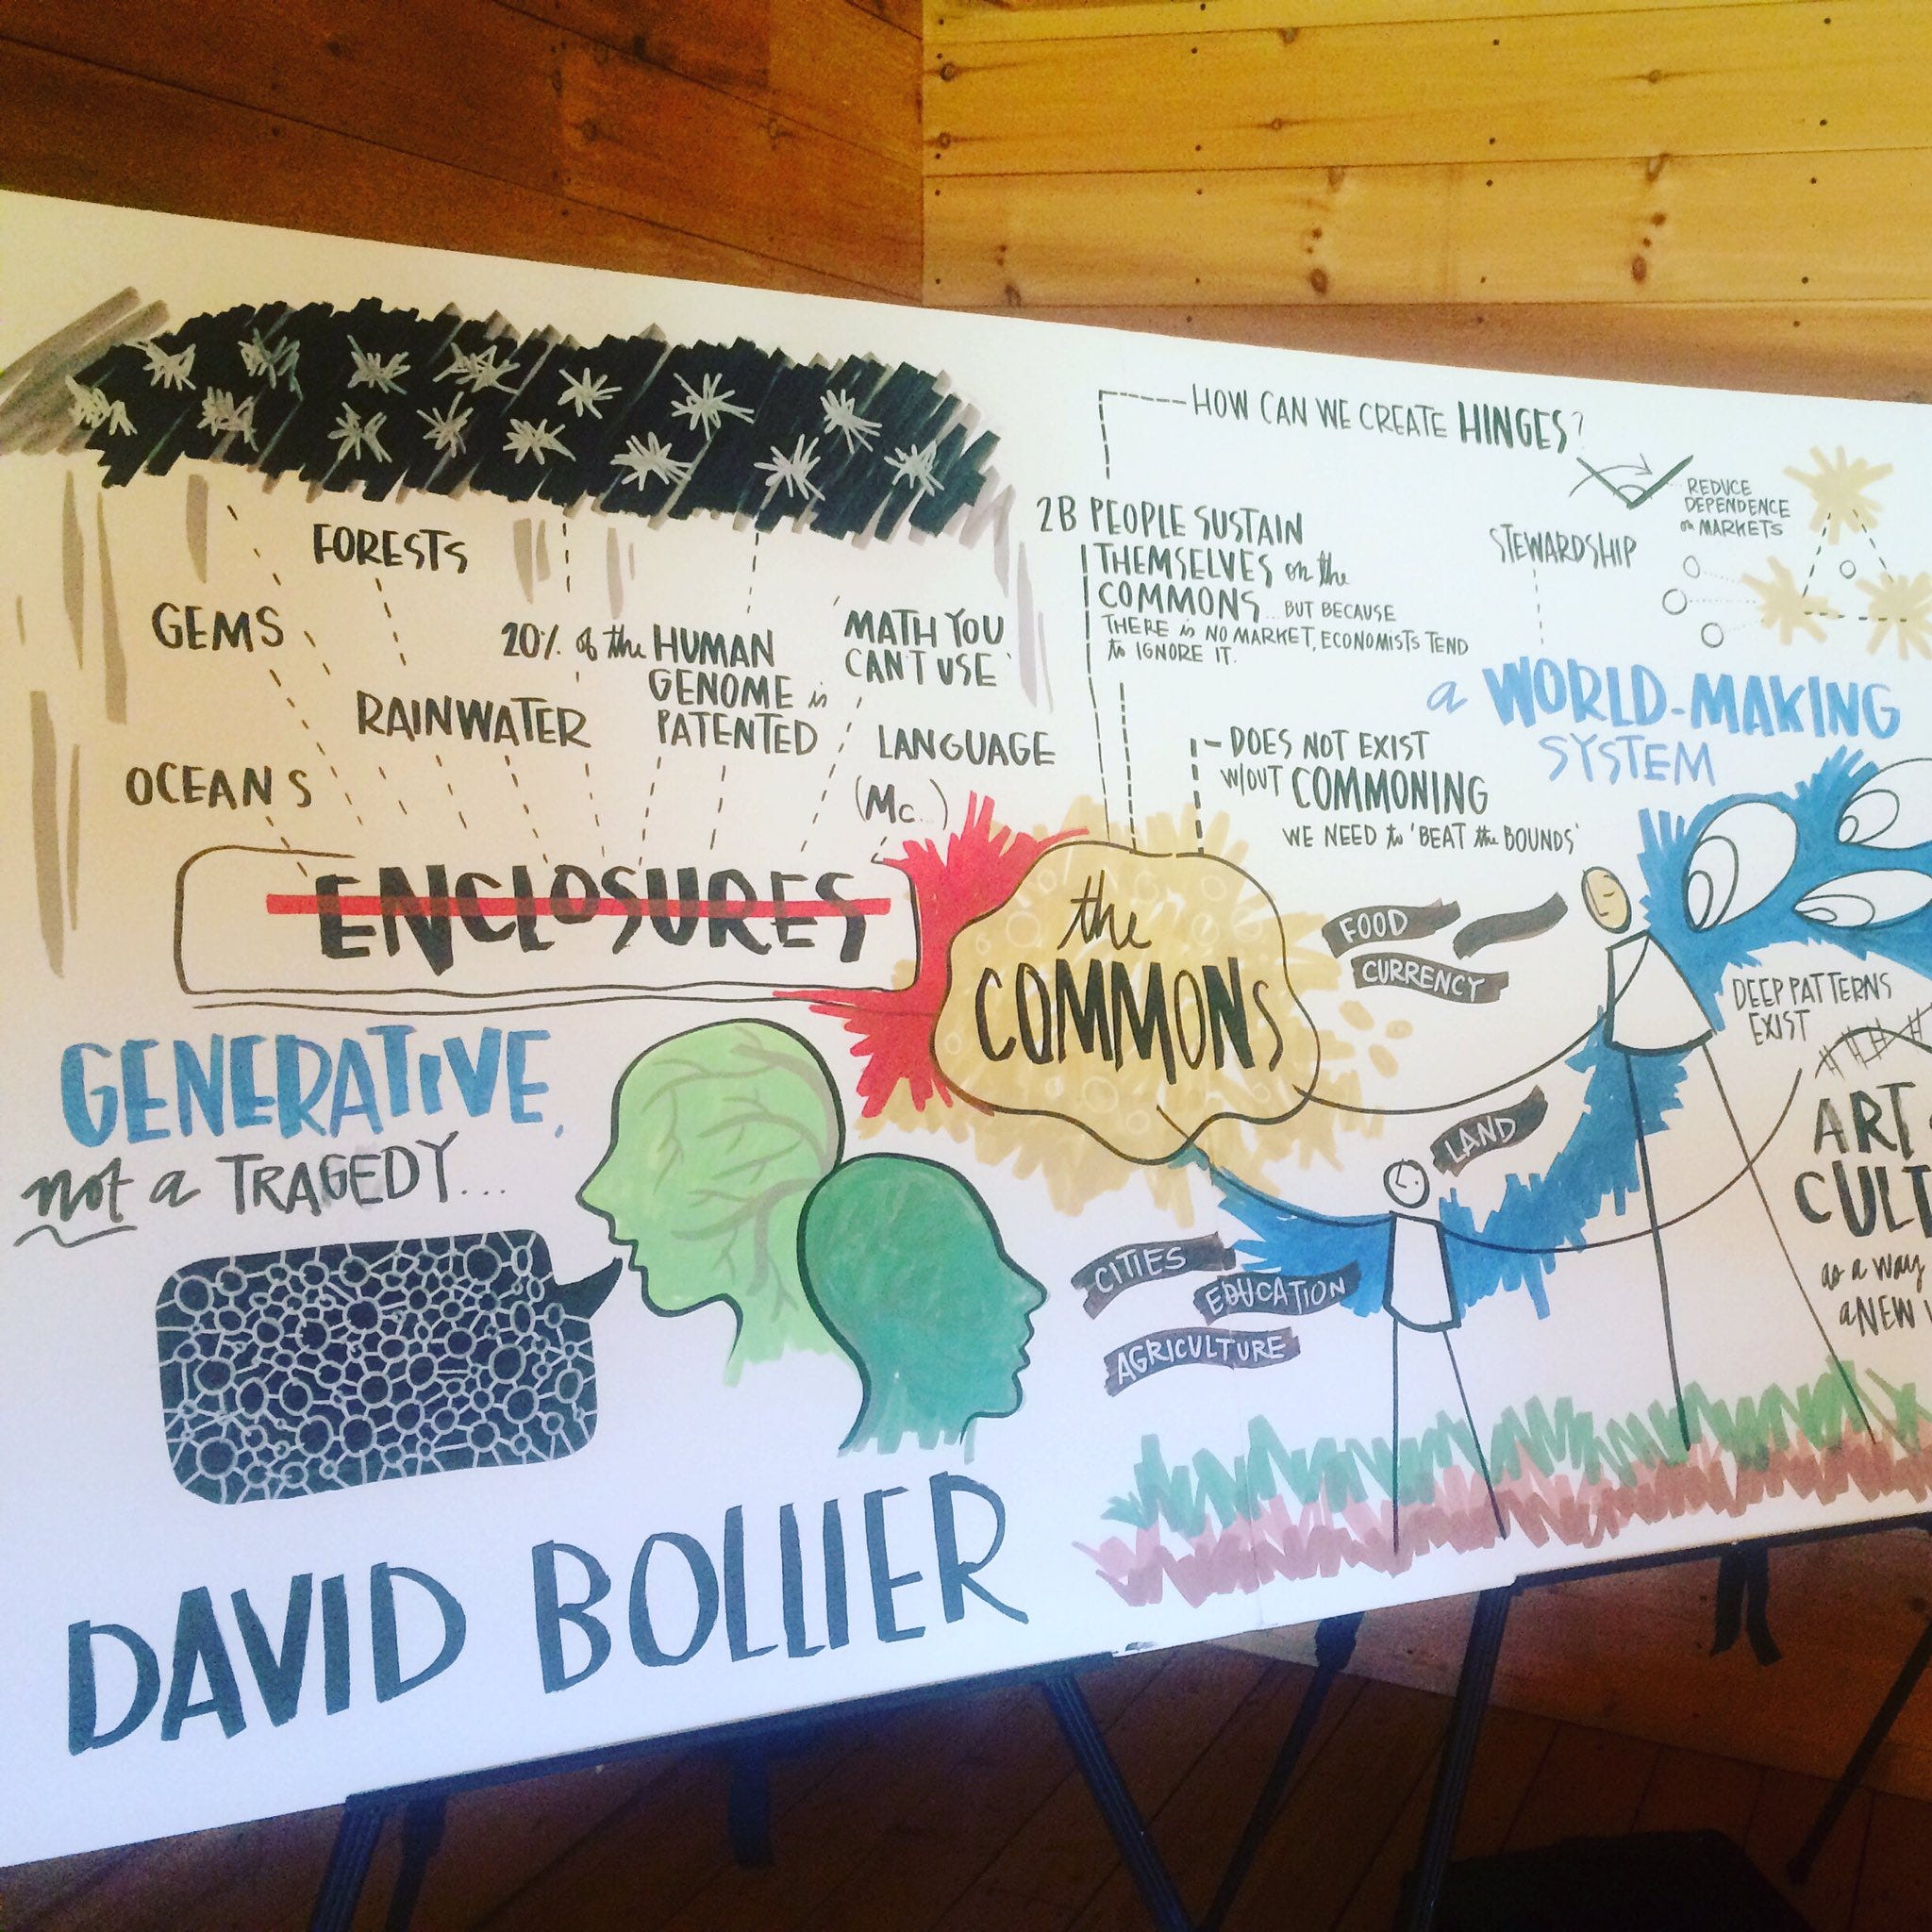 FORESTS
GEMS
RAINWATER
OCEANS
20% of the HUMAN
GENOME is
PATENTED
MATH YOU
CAN'T USE
LANGUAGE
(Mc...)
ENCLOSURES
GENERATIVE,
not a TRAGEDY...
DAVID BOLLIER
the
COMMONS
HOW CAN WE CREATE HINGES?
2B PEOPLE SUSTAIN
THEMSELVES on the
COMMONS... BUT BECAUSE
THERE is NO MARKET, ECONOMISTS TEND
to IGNORE IT.
DOES NOT EXIST
W/OUT COMMONING
WE NEED to 'BEAT the BOUNDS'
STEWARDSHIP
REDUCE
DEPENDENCE
on MARKETS
a WORLD-MAKING
SYSTEM
FOOD
CURRENCY
LAND
CITIES
EDUCATION
AGRICULTURE
DEEP PATTERNS
EXIST
ART
CULT
as a way
a NEW